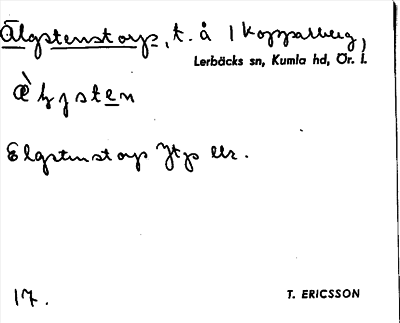 Älgstenstorp, t. å 1 Kopparberg,
Lerbäcks sn, Kumla hd, Ör. l.
Elgstenstorp Jtp
17.
T. ERICSSON